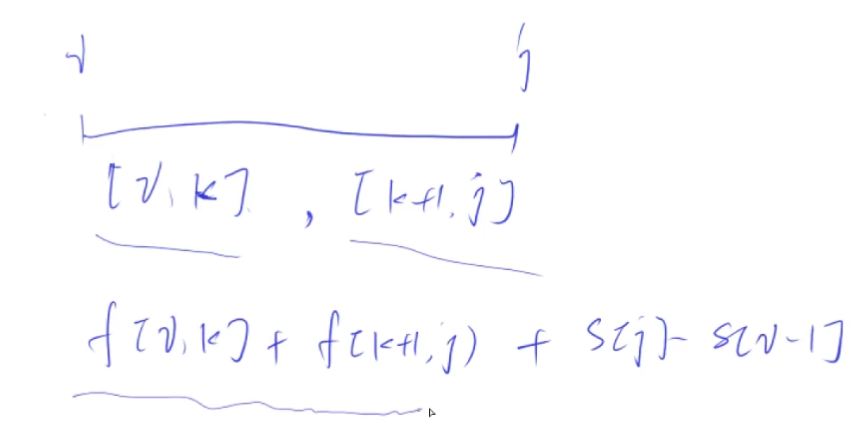 i j
[i,k] , [k+1,j]
f[i,k] + f[k+1,j) + S[j] - S[i-1]